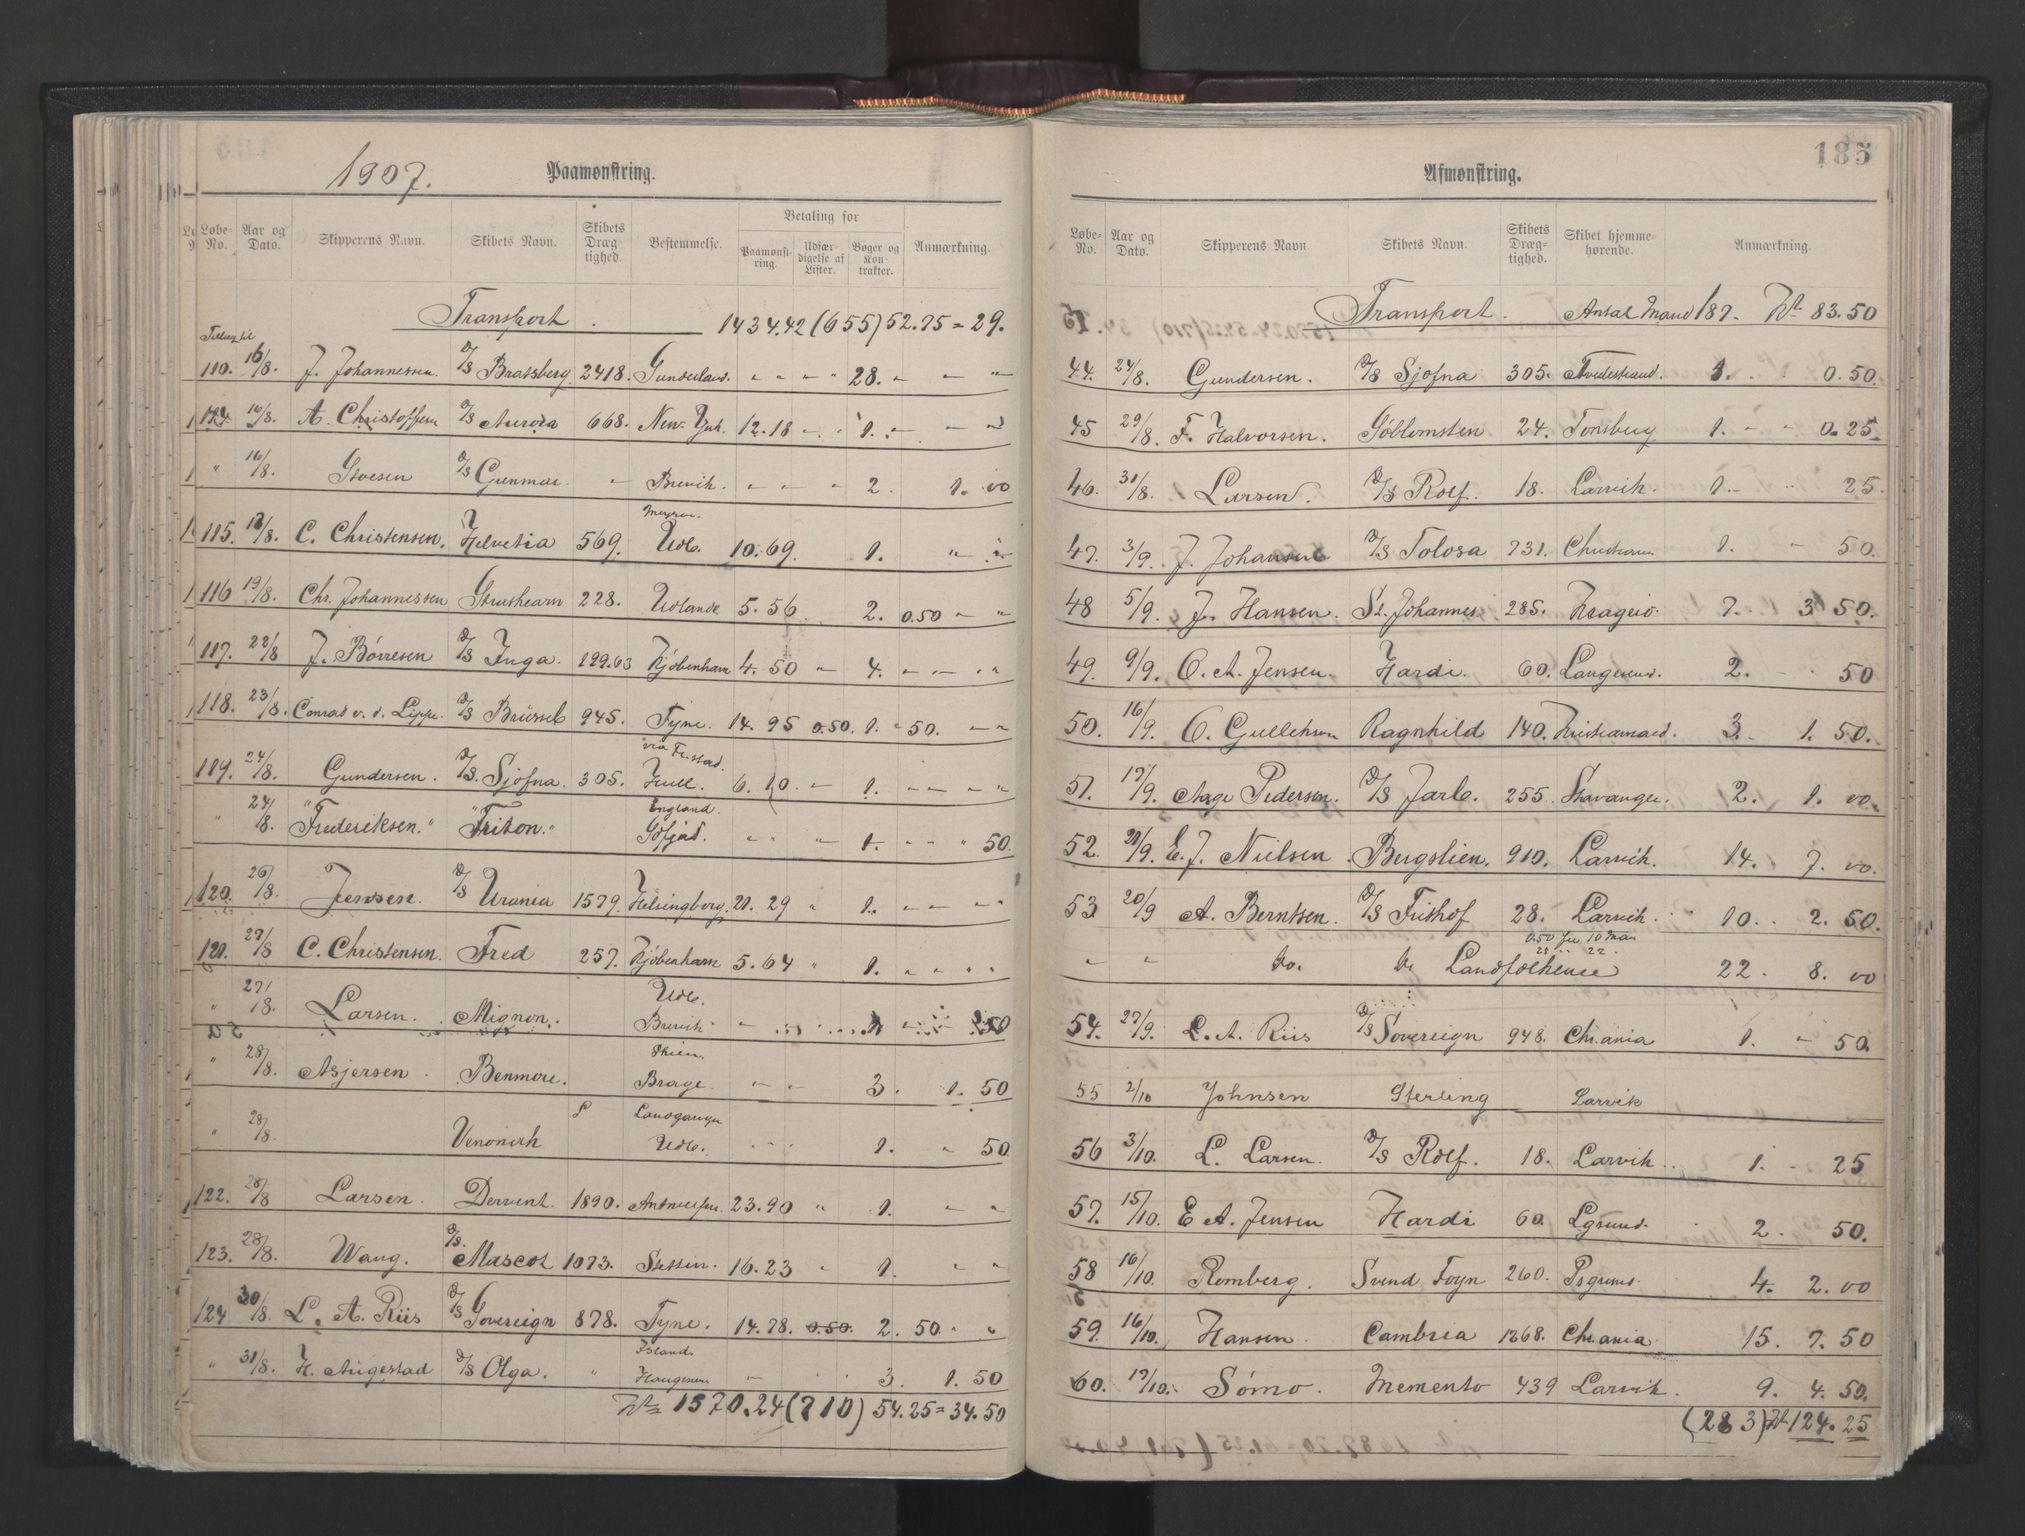 1907. Paamønstring.
Løbe-No. Aar og Dato. Skipperens Navn. Skibets Navn. Skibets Dræg tighed. Bestemmelse. Betaling for Paamønst-ring. Udfær-digelse af Lister. Bøger og Kon-trakter. Anmærkning.
Transport 1434.42 (655) 52.75 = 29.
110. 16/8. J. Johannessen. D/S Bratsberg. 2418. Sunderland. " " " " 28. " " "
16/8. A. Christoffersen D/S Aurora 668. New-York. 12.18 1.
" 16/8. D/S Gunmar. Brevik. " " " 2. 1. 00
115. 17/8. C. Christensen. Helvetia 569. Udl. 10.69. 1. " "
116 19/8. Chr. Johannessen Strathearn 228. Udlandet 5.56 2. 0.50 " "
117. 22/8 J. Børresen D/S Inga. 199.63 Kjøbenhavn 4.50 " 4.
118. 23/8. Conrad v. d. Lippe. D/S Brüssel 945. Tyne. 14.95 0.50. 1. " 50.
119. 24/8. Gundersen. D/S. Sjøfna. 305. via Fr.stad. Hull. 6.10. " 1.
" 24/8. "Frederiksen." "Triton." England. 1. " " " 50.
120. 26/8. Jensen. D/S Urania 1579. Helsingborg. 21.29 " 1.
121. 27/8 C. Christensen. Fred 257. Kjøbenhavn 5.64 " 1. " " " "
" 27/8 Larsen. Mignon. Udl. Brevik
" 28/8. Asjersen. Benmore. Skien. Brage. 3. 1. 50
" 28/8. Langgangen Udl. 1. " 50
122. 28/8 Larsen. Derwent. 1890. Antwerpen. 23.90 " 1. " "
123. 28/8. Wang. D/S. Mascot 1073. Stettin. 16.23 " 1. " "
124 30/8. L. A. Riis D/S Sovereign 878. Tyne. 14.78. 0.50. 2. 50. "
" 31/8. H. Augestad D/S Olga. " Island. Haugesund 3. 1. 50
Kr 1570.24 (710) 54.25 = 34.50
185
Afmønstring.
Løbe-No. Aar og Dato. Skipperens Navn. Skibets Navn. Skibets Dræg-tighed. Skibet hjemme-hørende. Anmærkning.
Transport. Antal Mand 187. Kr. 83.50
44. 24/8. Gundersen. D/S Sjøfna 305. Tvedestrand. 1. 0.50.
45 29/8. F. Halvorsen. Søblomsten 24. Tønsberg 1. 0.25.
46. 31/8. Larsen. D/S Rolf. 18. Larvik. 1. 25.
47. 3/9. J. Johansen D/S Tolosa 731. 1. 50.
48 5/9. J. Hansen. St. Johannes 285. Kragerø. 7. 3 50.
49. 9/9. C. A. Jensen. Hardi. 60. Langesund. 2. 50
50. 16/9. Ragnhild 140. Kristiansand. 3. 1. 50.
51. 17/9. Aage Pedersen. D/S Jarl. 255. Stavanger. 2. 1. 00.
52. 20/9. E. J. Nielsen. Bergslien. 910. Larvik. 14. 7. 00.
53 20/9 A. Berntsen. D/S Frithof 28. Larvik. 10. 2. 50.
0.50 for 10 Man
" " Do. Do Landfolkene 22. 8. 00
54. 27/9. L. A. Riis D/S Sovereign 948. Chr.ania 1. 50.
55 2/10 Johnsen Sterling Larvik
56 3/10. L. Larsen. D/S Rolf. 18. Larvik. 1. 25
57. 15/10. E A. Jensen Hardi 60. Lgsund. 2. 50.
58 16/10. Romberg. Svend Foyn 260. Psgrund. 4. 2.00
59. 16/10. Hansen. Cambria 1268. Chr.ania. 15. 7. 50
60. 17/10. Sømo. Memento 439 Larvik. 9. 4. 50.
(283) Kr. 124.25